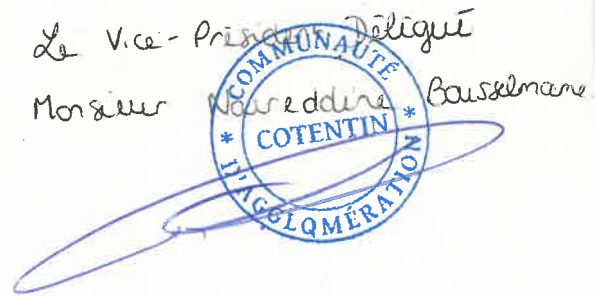 Le Vice-Président Déligué
Monsieur Noureddine Bousselmane
* COMMUNAUTÉ * D'AGGLOMÉRATION
COTENTIN